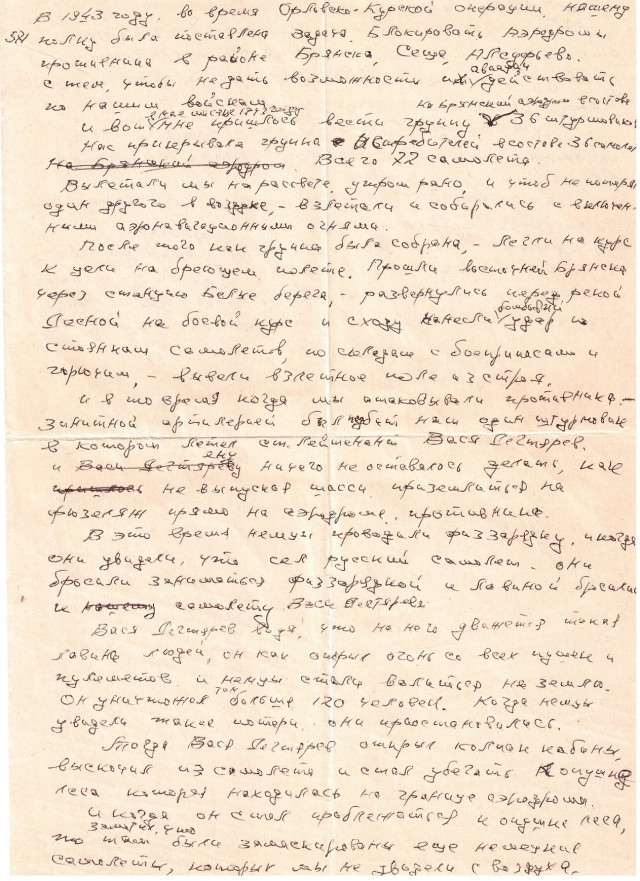 В 1943 году, во время Орловско-Курской операции. Нашему
полку была поставлена задача. Блокировать Аэродромы
противника в районе Брянска, Сеща, Алсуфьево.
с тем, чтобы не дать возможности их авиации действовать
по нашим войскам
и вот в мае месяце 1943 году мне пришлось вести группу на Брянский аэродром в составе 36 штурмовиков
Нас прикрывала группа истребителей в составе 36 самолет
на Брянский аэродром. Всего 72 самолета.
Вылетали мы на рассвете, утром рано, и чтоб не потерять
один другого в воздухе, - взлетали и собирались с включен-
ными аэронавигационными огнями.
После того как группа была собрана, - легли на курс
к цели на бреющем полете. Прошли восточней Брянска
через станцию Белые берега, - развернулись перед рекой
Десной на боевой курс и сходу нанесли бомбовый удар по
стоянкам самолетов, по складам с боеприпасами и
горючим, - вывели взлетное поле из строя.
и в то время когда мы атаковывали противника -
зинитной артилерией был подбит наш один штурмовик
в котором летел ст. лейтенант Вася Дегтярев.
и Васи Дегтяреву ему ничего не оставалось делать, как
пришлось не выпуская шасси приземлиться на
фюзеляж прямо на аэродроме противника.
В это время немцы проводили физзарядку, и когда
они увидели, что сел русский самолет. они
бросали заниматься физзарядкой и лавиной бросались
к нашему самолету Васи Дегтярева.
Вася Дегтярев видя, что на него движется такая
лавина людей, он как открыл огонь со всех пушек и
пулеметов и немцы стали валиться на землю.
Он уничтожил там больше 120 человек. Когда немцы
увидели такие потери. они приостановились.
Тогда Вася Дегтярев открыл колпак кабины
выскочил из самолета и стал убегать к опушке
леса которая находилась на границе аэродрома.
и когда он стал приближаться к опушке леса,
то заметил, что там были замаскированы еще немецкие
самолеты, которых мы не увидели с воздуха.